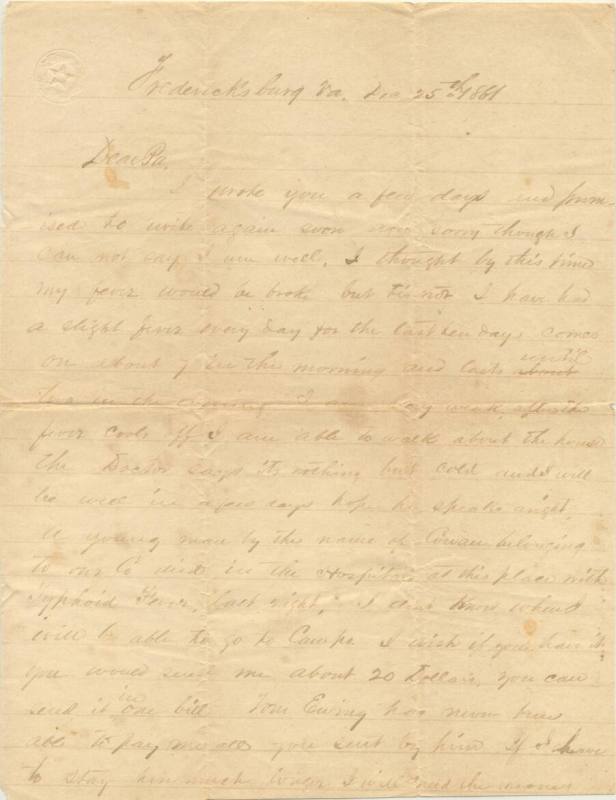 Fredericksburg Va. Dec 25th 1861
Dear Pa.
I wrote you a few days and prom-
ised to write again soon now sorry though I
can not say I am well. I thought by this time
my fever would be broke but tis not I have had
a slight fever every day for the last ten days comes
on about 9 in the morning and lasts until
in the evening I am very weak after the
fever cools off I am able to walk about the house
the Doctor says its nothing but cold and I will
be well in a few days hope he speaks aright.
A young man by the name of Cowan belonging
to our Co died in the Hospital at this place with
Typhoid Fever, last night. I dont know when I
will be able to go to Camp. I wish if you have it
you would send me about 20 Dollars, you can
send it in one bill Tom Ewing has never been
able to pay me all you sent by him if I have
to stay here much longer I will need the money